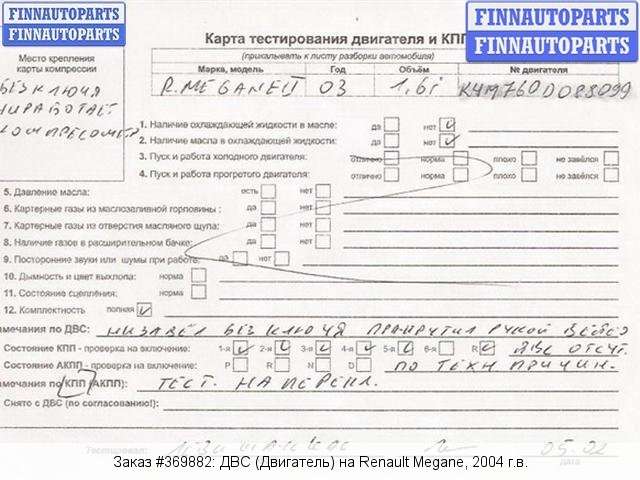 FINNAUTOPARTS
FINNAUTOPARTS
FINNAUTOPARTS
FINNAUTOPARTS
Карта тестирования двигателя и КПП
(прикалывать к листу разборки автомобиля)
Место крепления
карты компрессии
БЕЗ КЛЮЧЯ
НИРАБОТАЕТ
КОМПРЕСОМЕТР
Марка, модель Год Объём № двигателя
R. MEGANE II 03 1,6i K4M760D088099
1. Наличие охлаждающей жидкости в масле: да нет
2. Наличие масла в охлаждающей жидкости: да нет
3. Пуск и работа холодного двигателя: отлично норма плохо не завёлся
4. Пуск и работа прогретого двигателя: отлично норма плохо не завёлся
5. Давление масла: есть нет
6. Картерные газы из маслозаливной горловины : да нет
7. Картерные газы из отверстия масляного щупа: да нет
8. Наличие газов в расширительном бачке: да нет
9. Посторонние звуки или шумы при работе: да нет
10. Дымность и цвет выхлопа: норма
11. Состояние сцепления: норма
12. Комплектность полная
амечания по ДВС: НИЗАВЕЛ БЕЗ КЛЮЧЯ ПРАКРУТИЛ РУКОЙ
Состояние КПП - проверка на включение: 1-я 2-я 3-я 4-я 5-я 6-я R ДВС ОТСУТ.
Состояние АКПП - проверка на включение: P R N D ПО ТЕХН ПРИЧИН.
амечания по КПП (АКПП): ТЕСТ. НА ПЕРЕКЛ.
Снято с ДВС (по согласованию!):
Тестировал: 05.02
дата
Заказ #369882: ДВС (Двигатель) на Renault Megane, 2004 г.в.